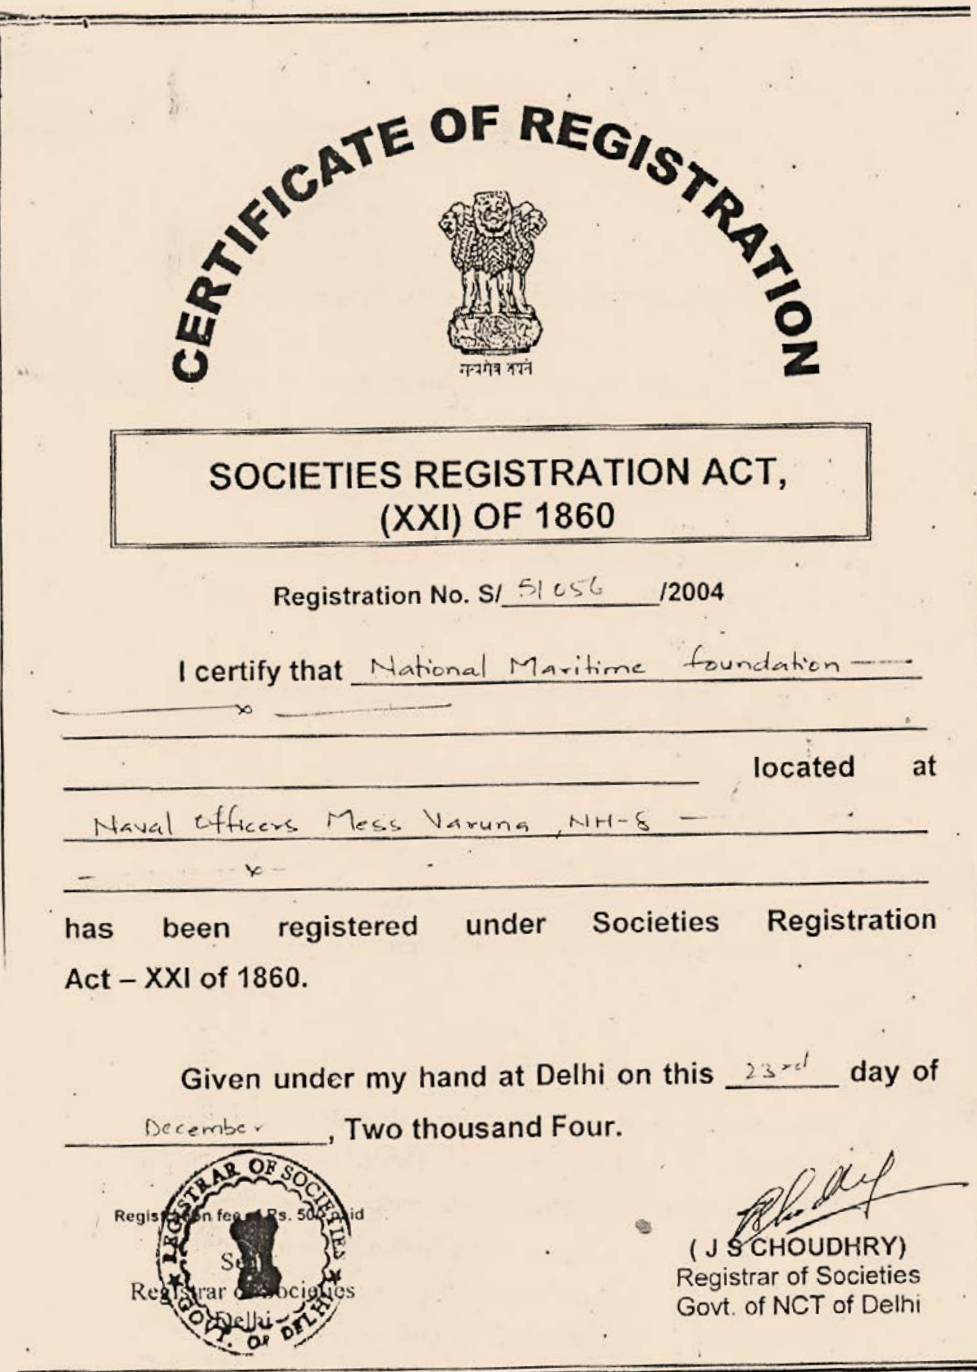 CERTIFICATE OF REGISTRATION
SOCIETIES REGISTRATION ACT,
(XXI) OF 1860
Registration No. S/ 51056 /2004
I certify that National Maritime foundation
located at
Naval Officers Mess Varuna, NH-8
has been registered under Societies Registration
Act – XXI of 1860.
Given under my hand at Delhi on this 23rd day of
December, Two thousand Four.
REGISTRAR OF SOCIETIES
GOVT. OF DELHI
Registration fee of Rs. 50/- paid
Seal
Registrar of Societies
Delhi
(J S CHOUDHRY)
Registrar of Societies
Govt. of NCT of Delhi